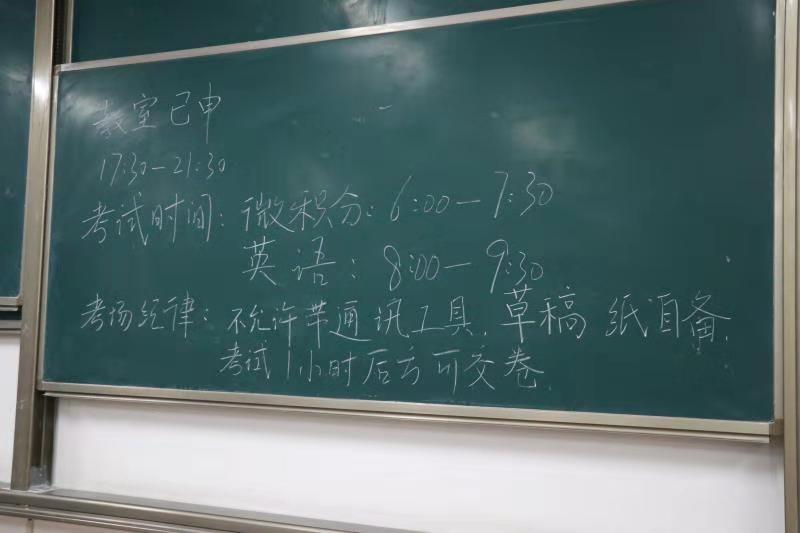 教室已申
17:30-21:30
考试时间：微积分：6:00-7:30
英语：8:00-9:30
考场纪律：不允许带通讯工具，草稿纸自备，
考试1小时后方可交卷。